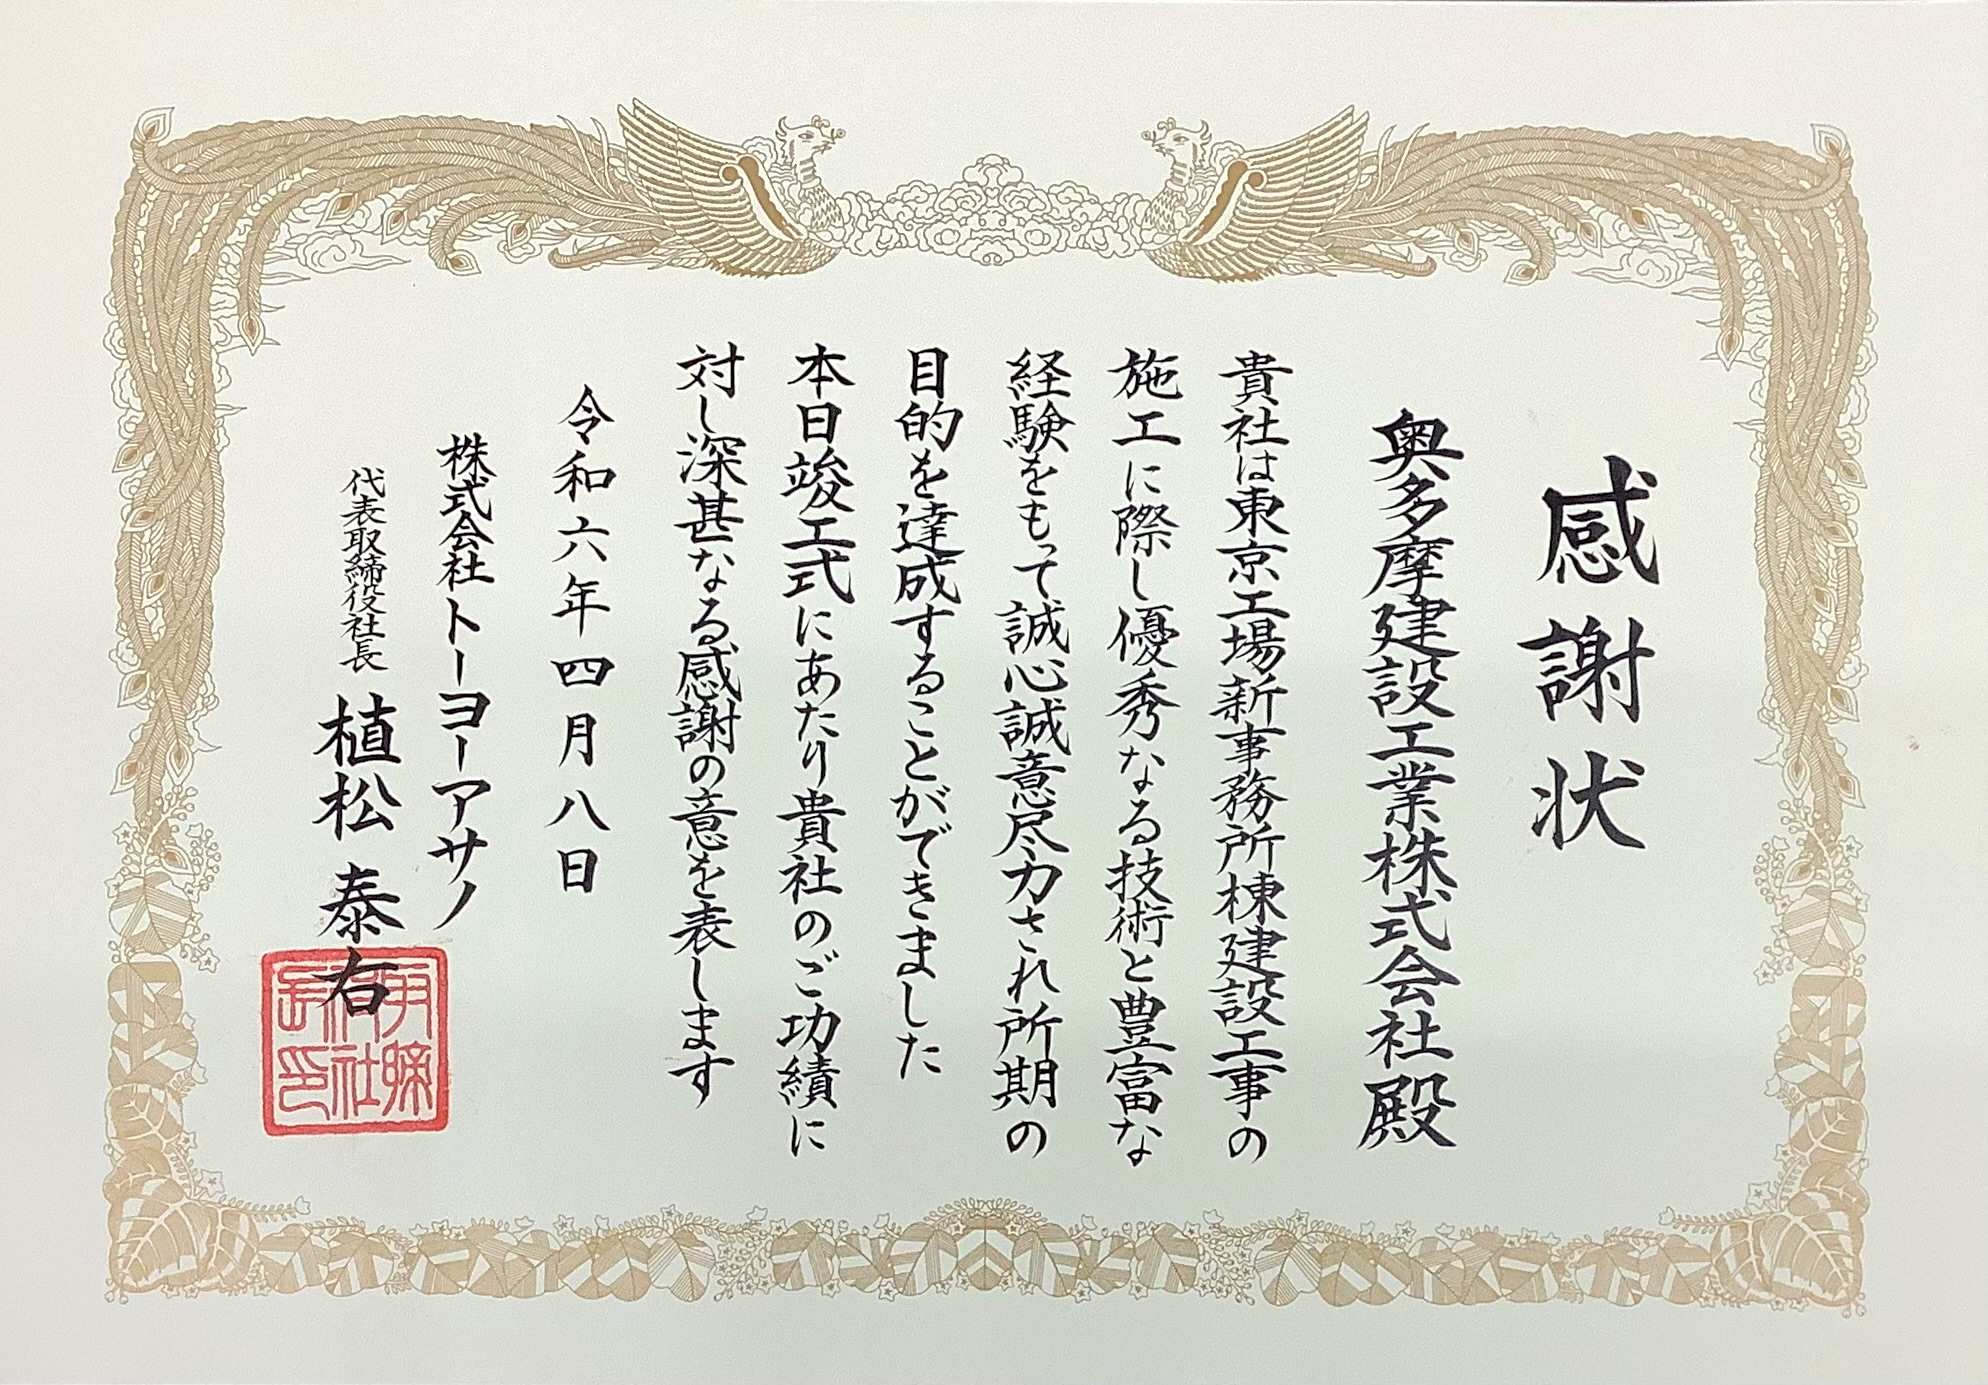 感謝状
奥多摩建設工業株式会社殿
貴社は東京工場新事務所棟建設工事の
施工に際し優秀なる技術と豊富な
経験をもって誠心誠意尽力され所期の
目的を達成することができました
本日竣工式にあたり貴社のご功績に
対し深甚なる感謝の意を表します
令和六年四月八日
株式会社トーヨーアサノ
代表取締役社長 植松泰右
取締役社長印